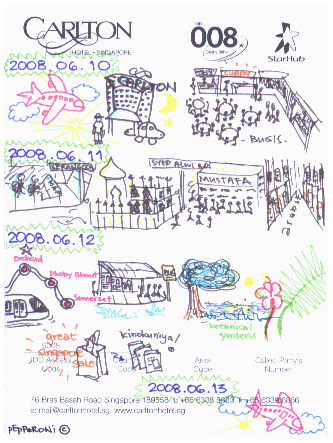 CARLTON
HOTEL · SINGAPORE
008
StarHub
2008.06.10
CARLTON
BUGIS.
2008.06.11
SYED ALWI RD
MUSTAFA
2008.06.12
Orchard
Dhoby Ghaut
Somerset
BUS
botanical gardens
great
singapore
sale
kinokuniya!
IDD Access
Code
Area
Code
Called Party's
Number
2008.06.13
76 Bras Basah Road Singapore 189558 t: +65 6338 8333 f: +65 6339 6866
e: mail@carltonhotel.sg www.carltonhotel.sg
PEPPARONi ©